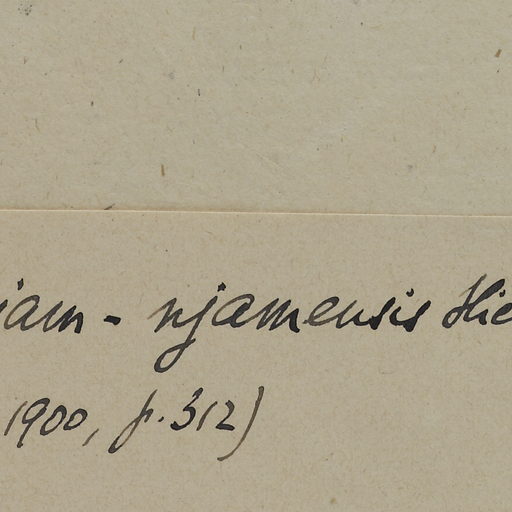 iam - njamensis Hie
1900, p. 312)